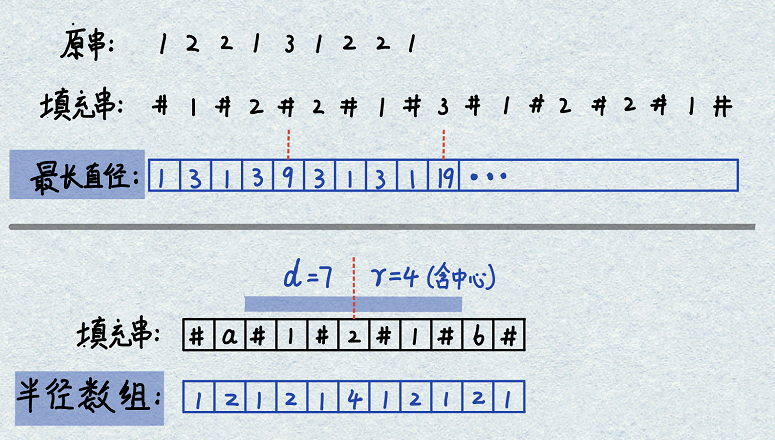 原串: 1 2 2 1 3 1 2 2 1
填充串: # 1 # 2 # 2 # 1 # 3 # 1 # 2 # 2 # 1 #
最长直径: 1 3 1 3 9 3 1 3 1 19 ···
d=7 r=4 (含中心)
填充串: # a # 1 # 2 # 1 # b #
半径数组: 1 2 1 2 1 4 1 2 1 2 1